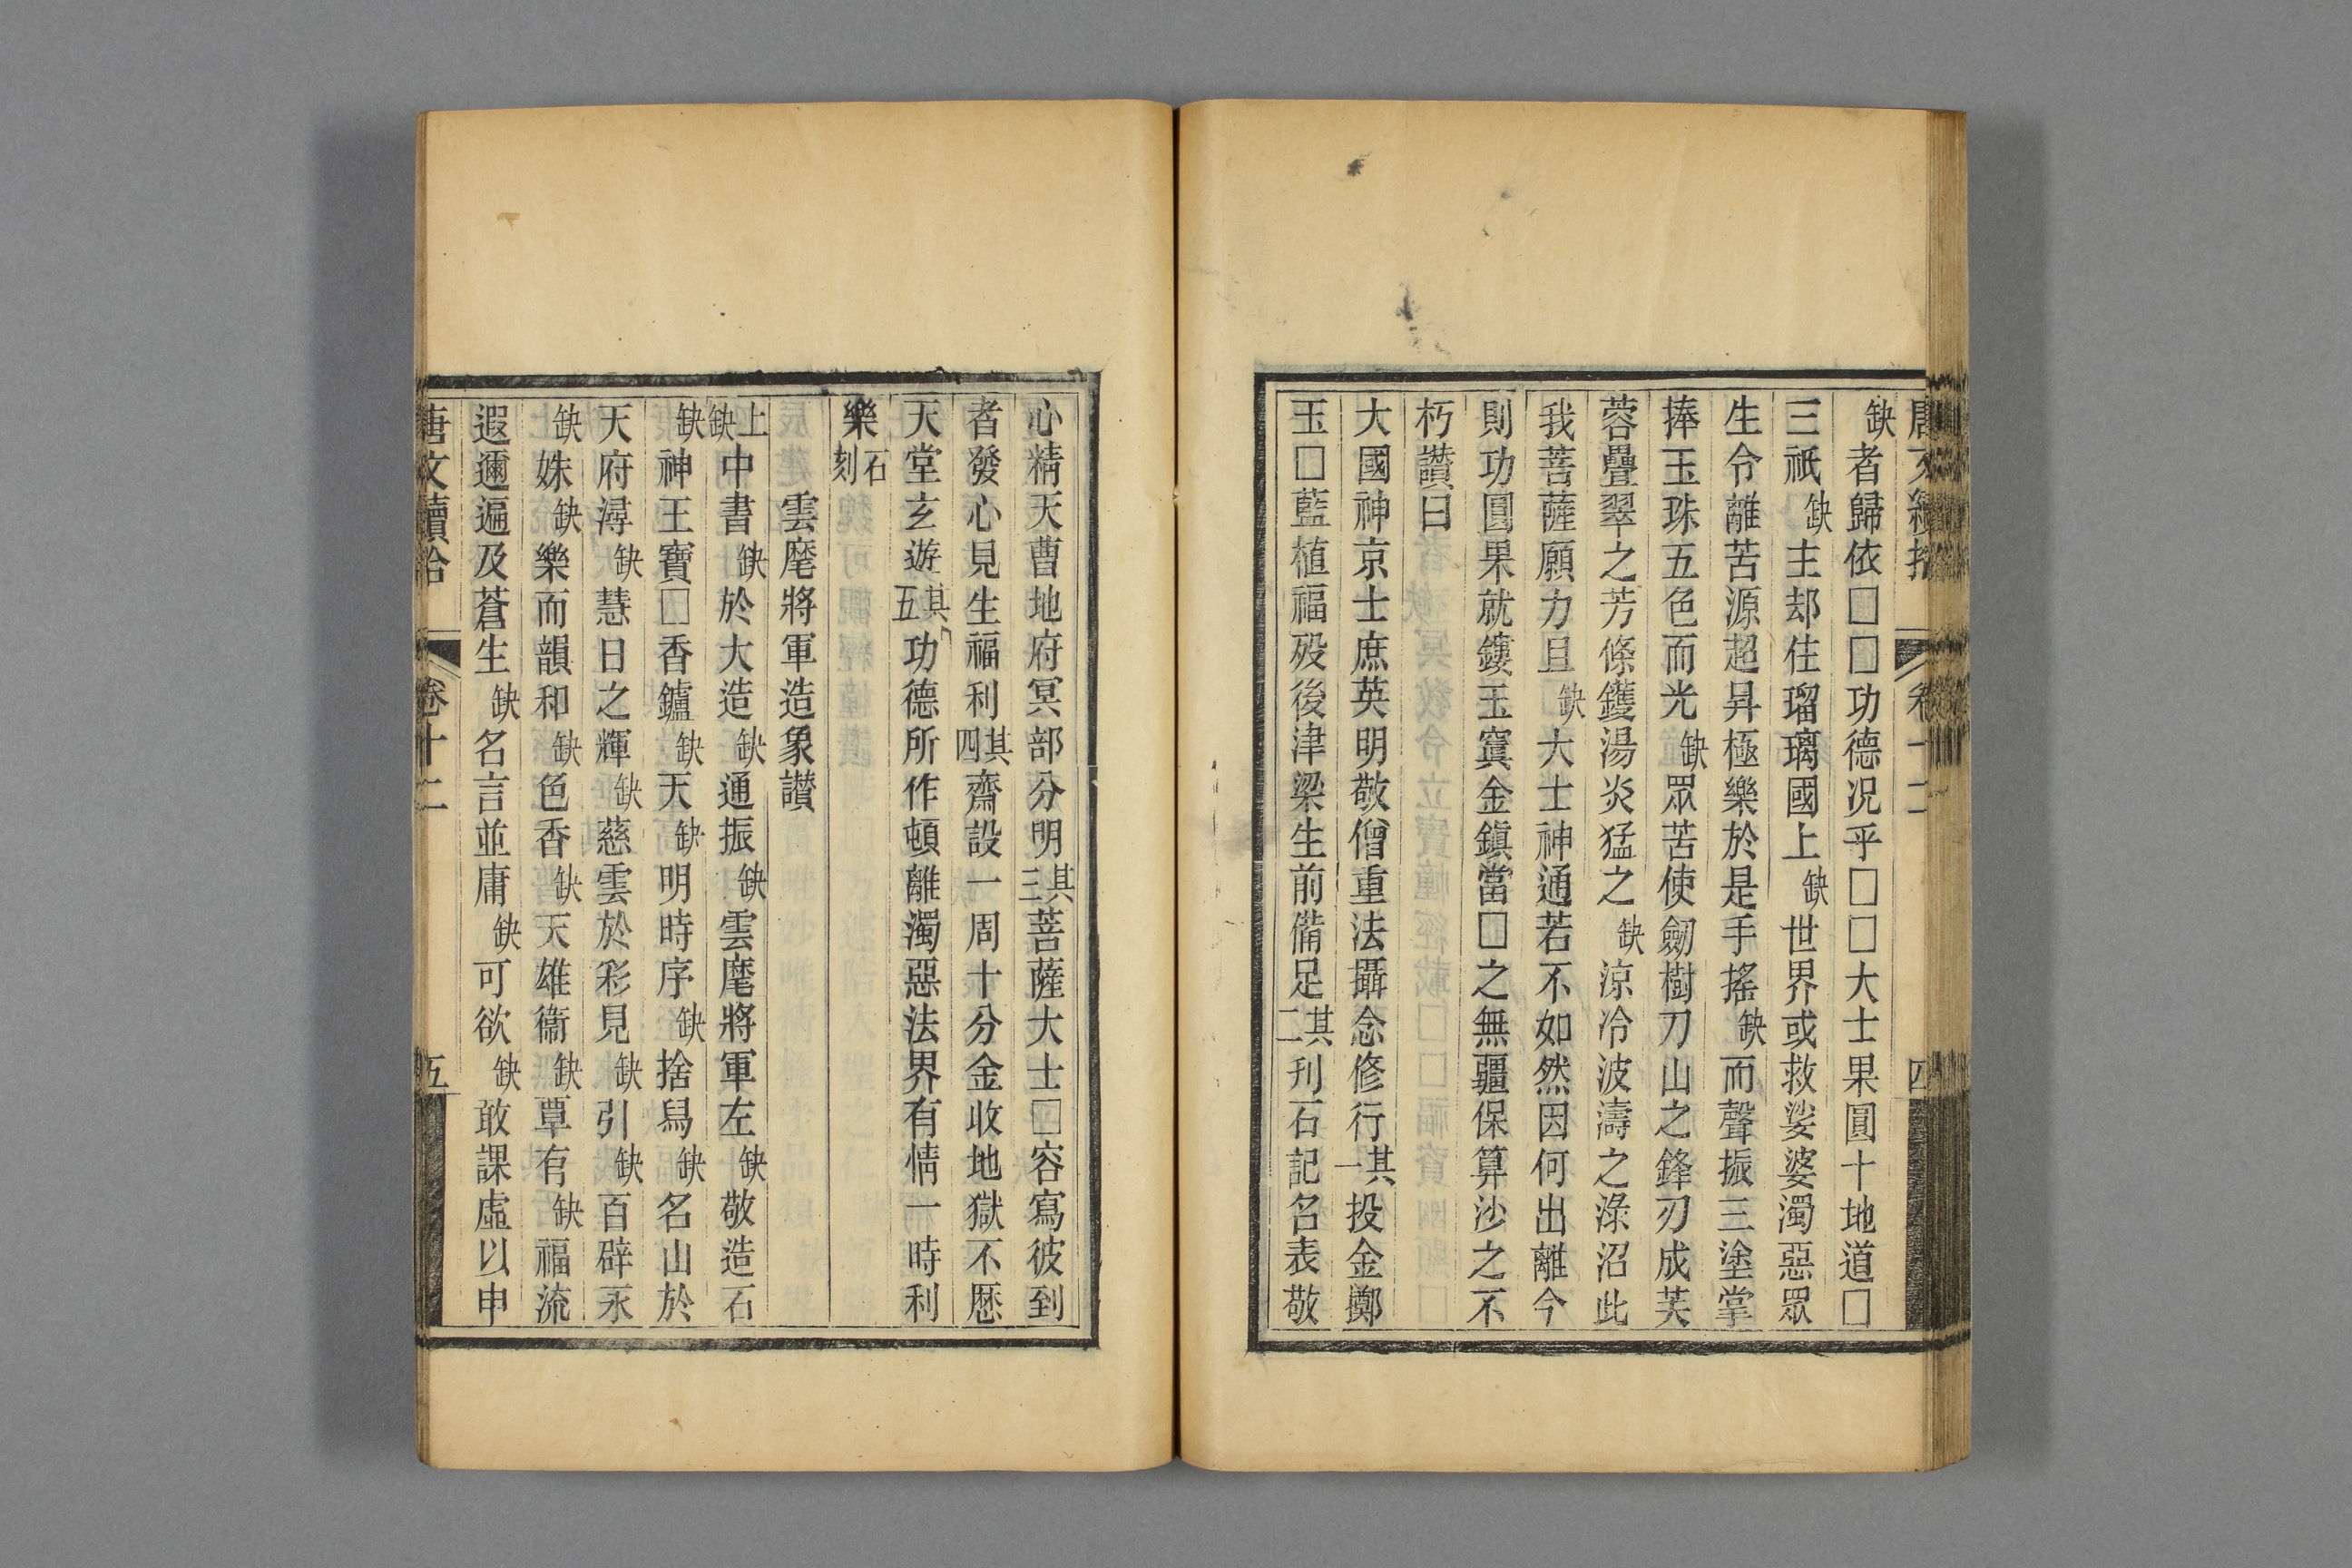 唐文續拾 卷十二 四
缺者歸依□□功德況乎□□大士果圓十地道□
三祇缺主却住瑠璃國上缺世界或救娑婆濁惡眾
生令離苦源超昇極樂於是手搖缺而聲振三塗掌
捧玉珠五色而光缺眾苦使劒樹刀山之鋒刃成芙
蓉疊翠之芳條鑊湯炎猛之缺涼冷波濤之淥沼此
我菩薩願力且缺大士神通若不如然因何出離今
則功圓果就鏤玉寘金鎭當□之無疆保算沙之不
朽讚曰
大國神京士庶英明敬僧重法攝念修行其一投金擲
玉□藍植福歿後津梁生前備足其二刋石記名表敬
心精天曹地府冥部分明其三菩薩大士□容寫彼到
者發心見生福利其四齋設一周十分金收地獄不歷
天堂玄遊其五功德所作頓離濁惡法界有情一時利
樂石刻
雲麾將軍造象讚
上缺中書缺於大造缺通振缺雲麾將軍左缺敬造石
缺神王寶□香鑪缺天缺明時序缺捨舄缺名山於
天府潯缺慧日之輝缺慈雲於彩見缺引缺百辟永
缺姝缺樂而韻和缺色香缺天雄衞缺覃有缺福流
遐邇遍及蒼生缺名言並庸缺可欲缺敢課虛以申
唐文續拾 卷十二 五